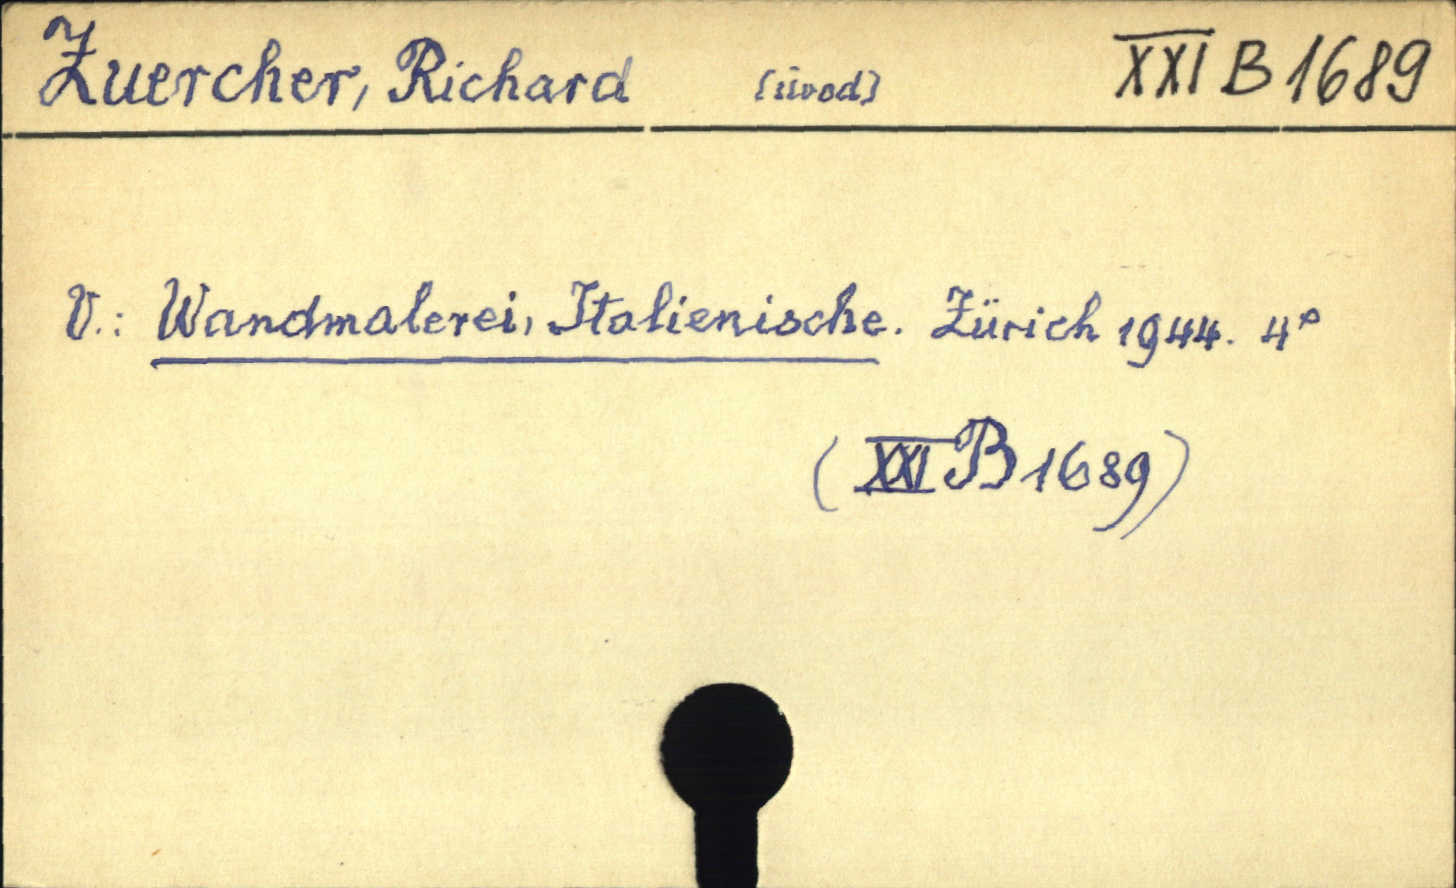 Zuercher, Richard [úvod] XXI B 1689
V.: Wandmalerei, Italienische. Zürich 1944. 4°
(XXI B 1689)